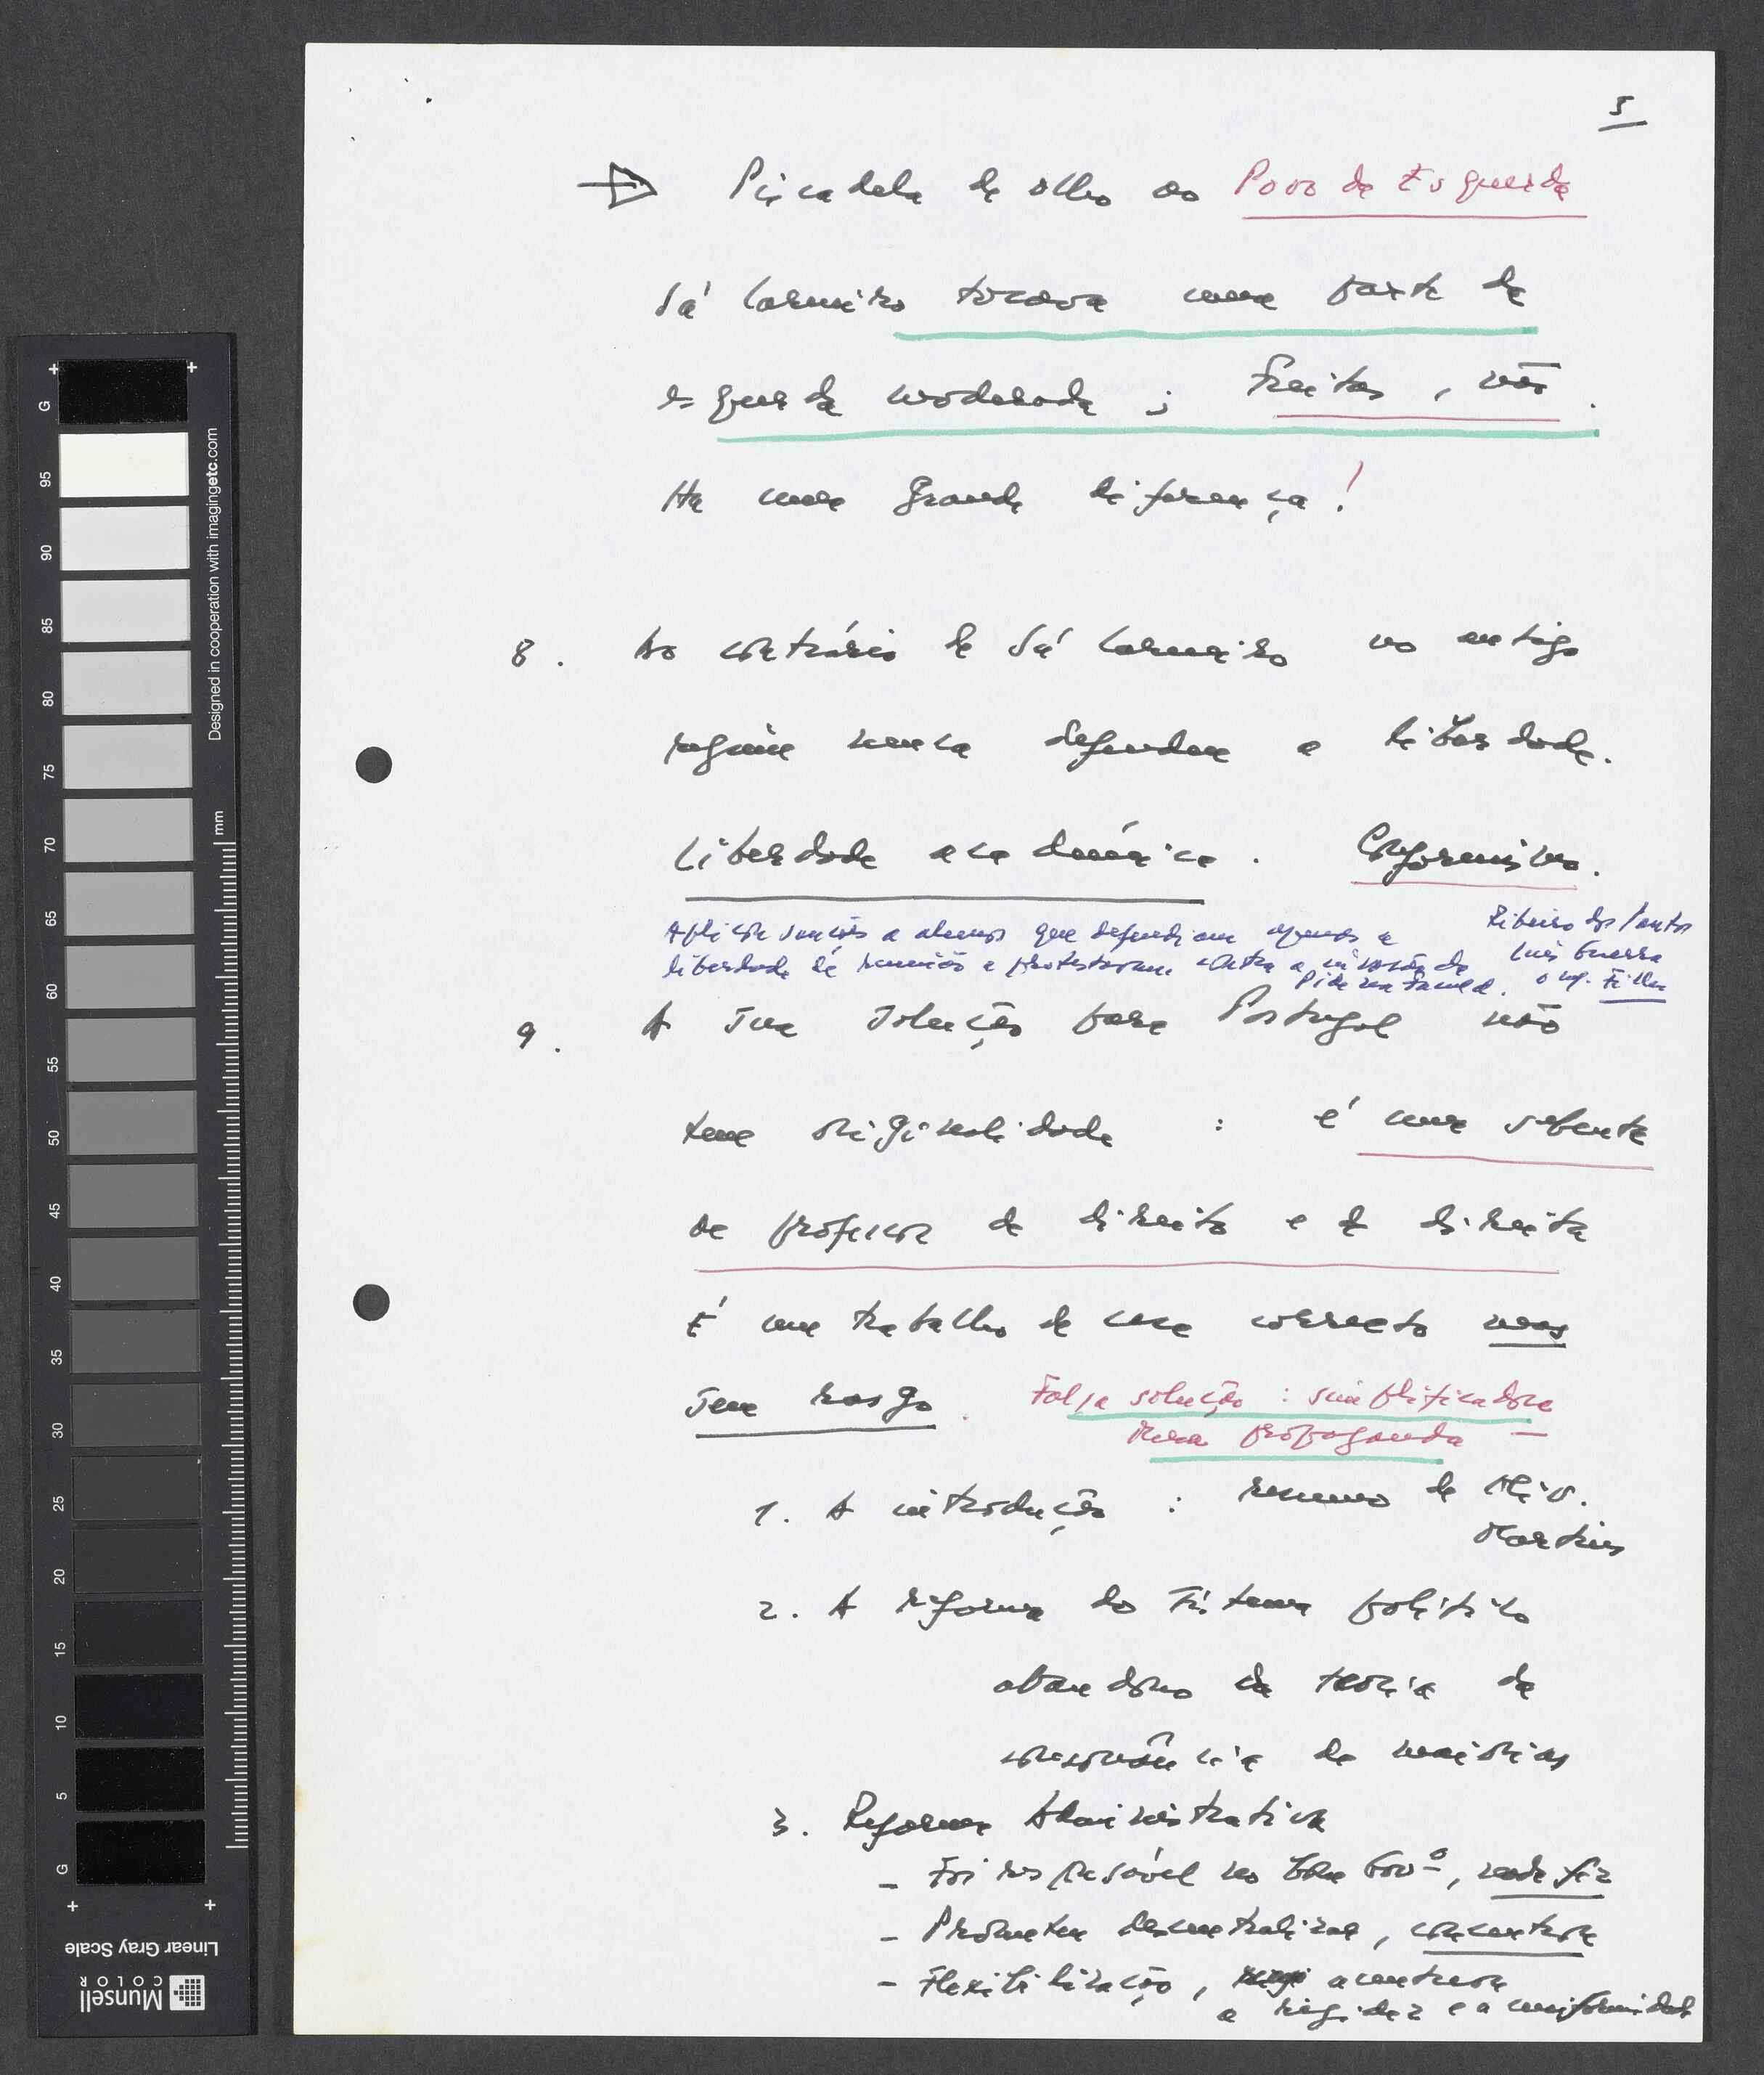 5
Piscadela de olho ao Povo de Esquerda
Sá Carneiro tocava uma parte da
esquerda moderada; Freitas, não.
Há uma grande diferença!
8. Ao contrário de Sá Carneiro no antigo
regime nunca defendeu a liberdade.
Liberdade académica. Conformismo.
Aplicou sanções a alunos que defendiam apenas a
liberdade de reunião e protestavam contra a invasão da
Pide na Faculd.
Ribeiro dos Santos
Luís Guerra
o
9. A sua solução para Portugal não
tem originalidade : é uma sebenta
de professor de direito e de direita
É um trabalho de casa correcto mas
sem rasgo. Falsa solução : simplificadora
Mera propaganda —
1. A introdução : resumo de Oliv.
Martins
2. A reforma do Sistema político
abandono da teoria da
consonância de maiorias
3. Reforma Administrativa
- Foi responsável no Govº, nada fez
- Prometeu descentralizar, concentrou
- Flexibilização, acentuou
a rigidez e a uniformidade
G
95
90
85
80
75
70
65
60
55
50
45
40
35
30
25
20
15
10
5
G
Designed in cooperation with imagingetc.com
mm
Linear Gray Scale
Munsell
COLOR